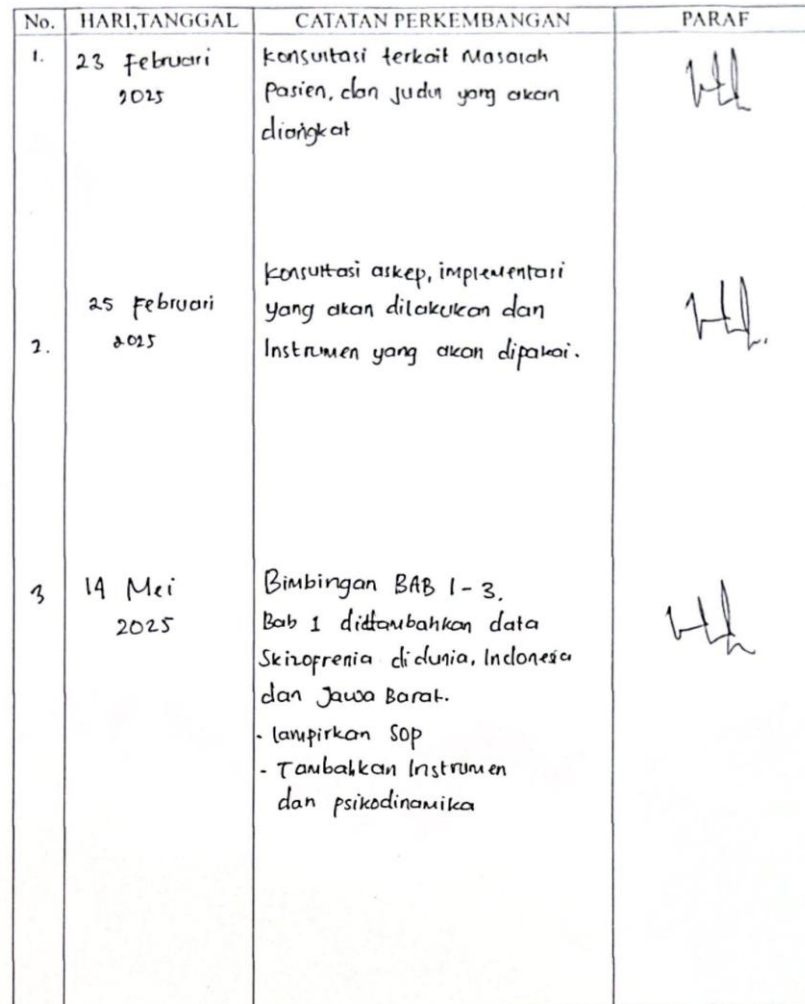 No. HARI,TANGGAL CATATAN PERKEMBANGAN PARAF
1. 23 Februari konsultasi terkait Masalah
2025 Pasien, dan Judul yang akan
diangkat
konsultasi askep, implementasi
25 Februari yang akan dilakukan dan
2. 2025 Instrumen yang akan dipakai.
3 14 Mei Bimbingan BAB 1-3.
2025 Bab 1 ditambahkan data
Skizofrenia di dunia, Indonesia
dan Jawa Barat.
- lampirkan SOP
- Tambahkan Instrumen
dan psikodinamika